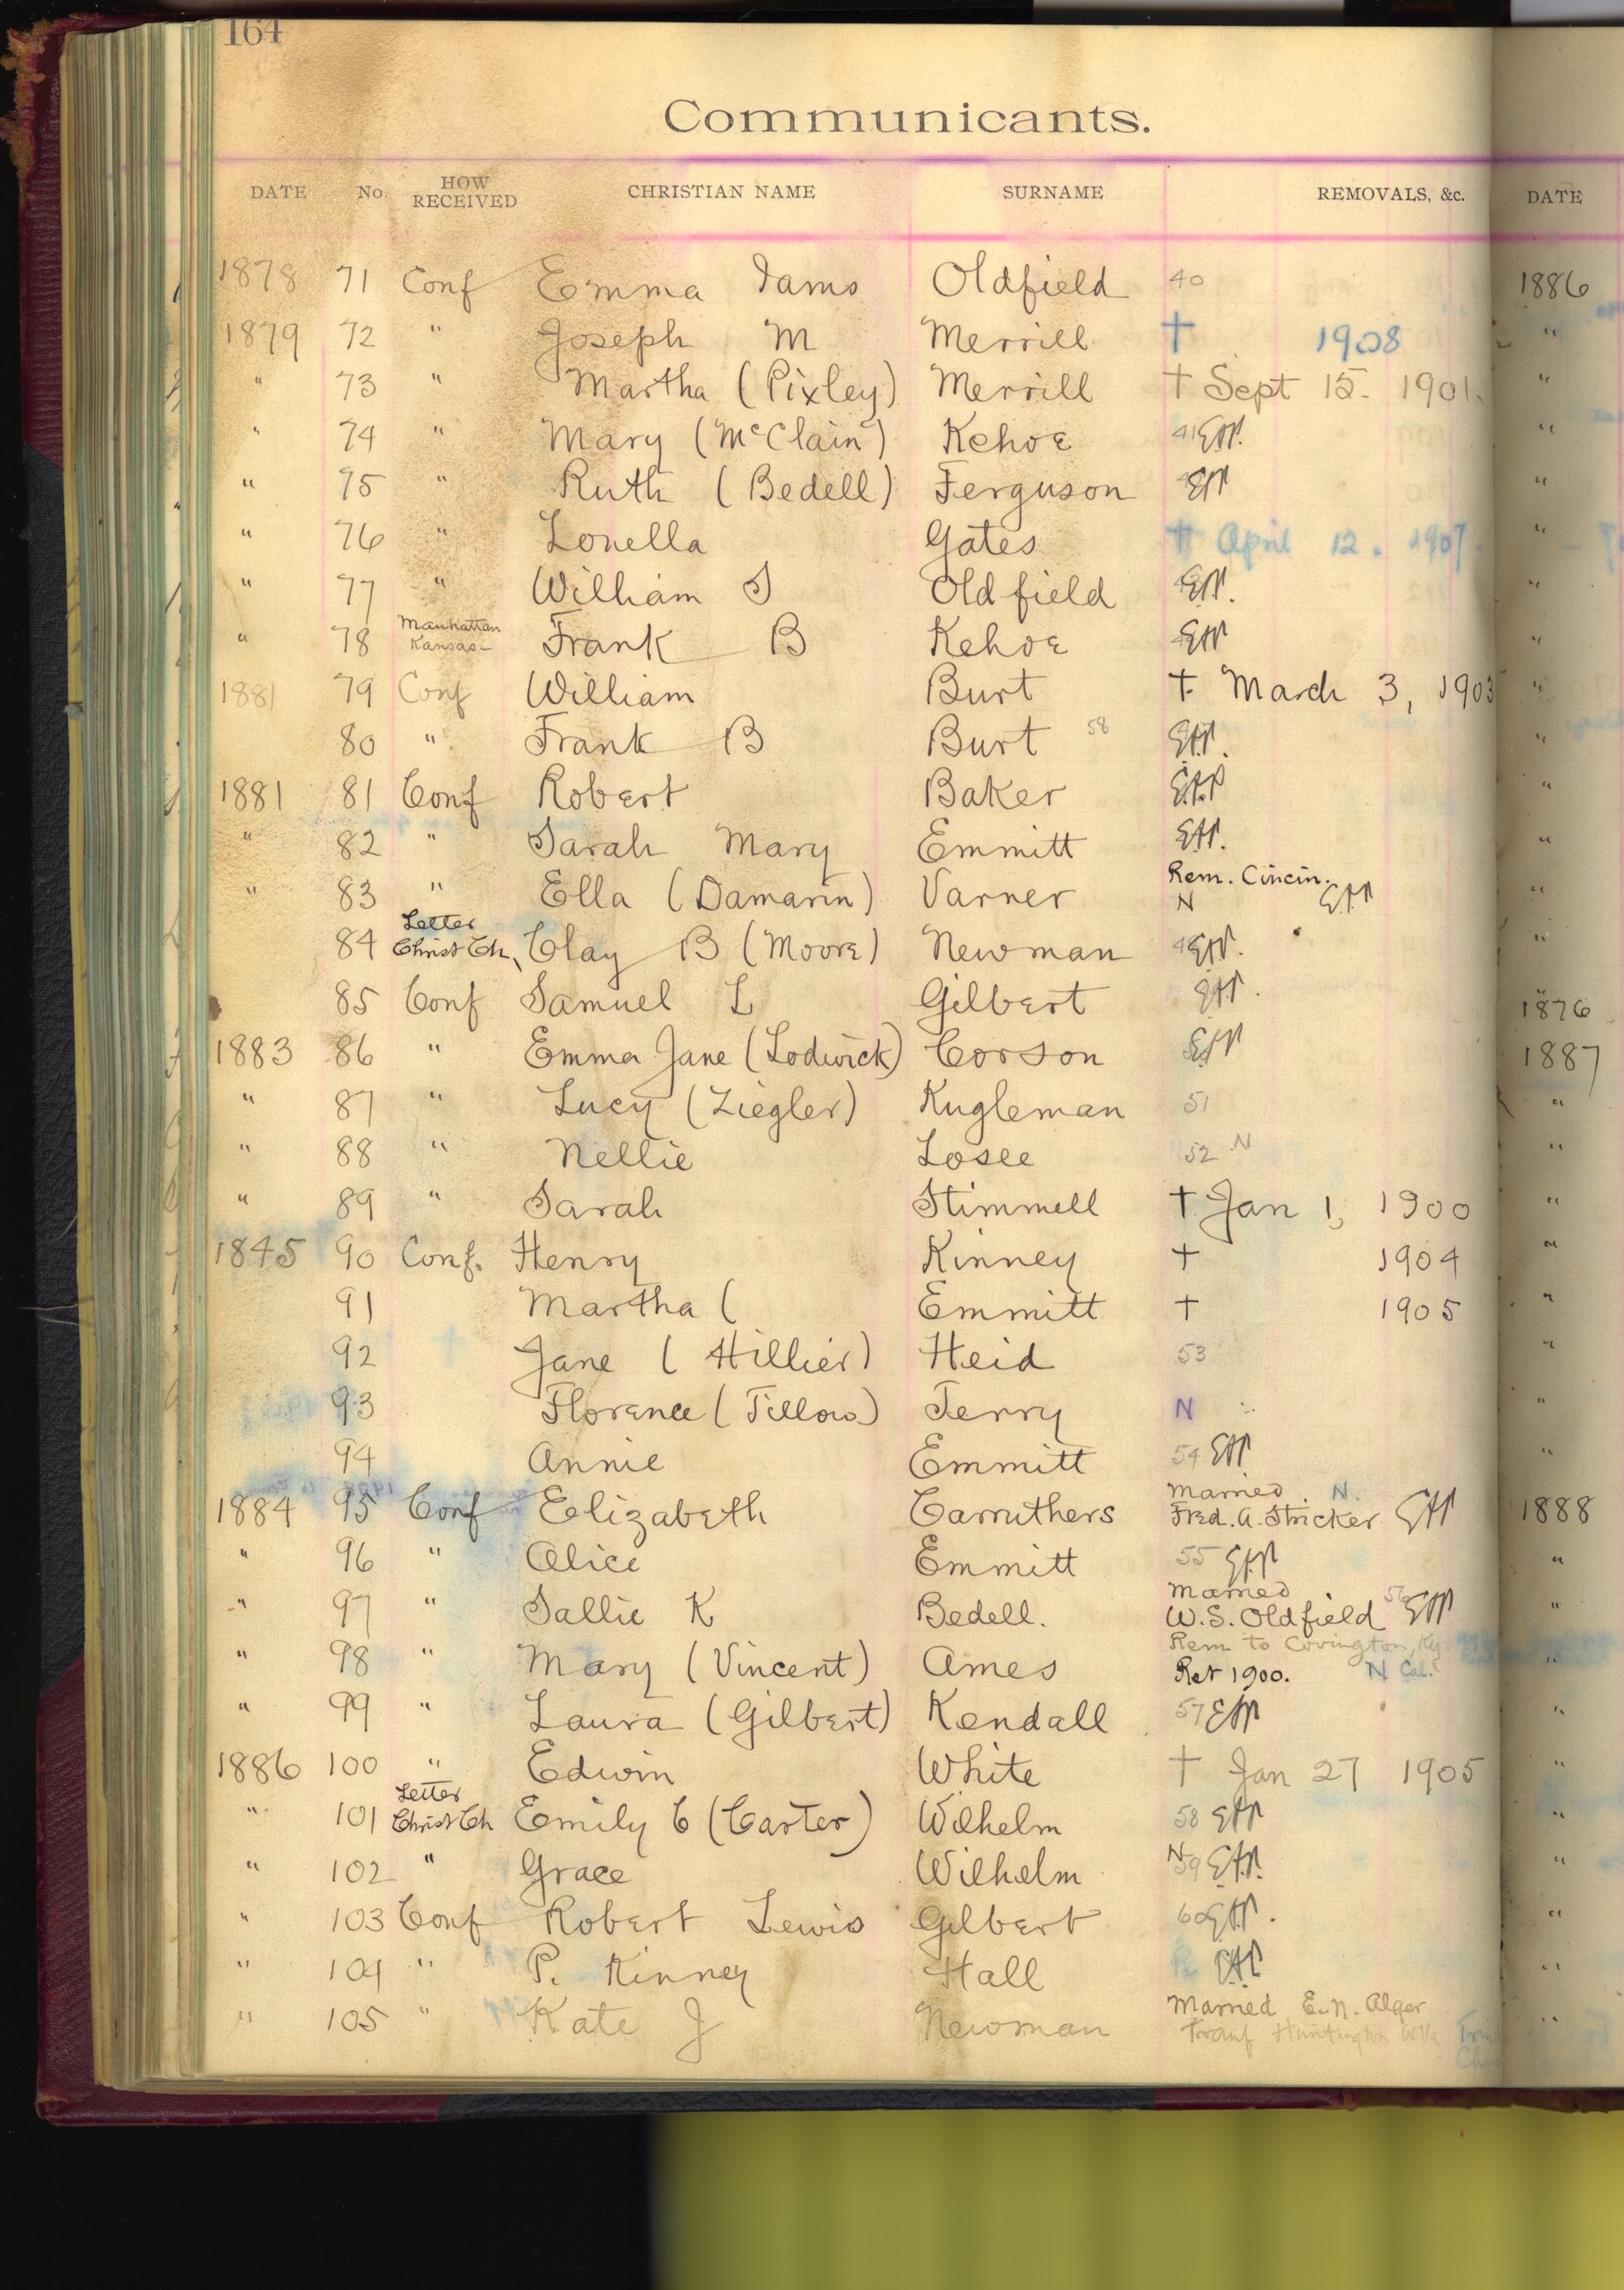 164
Communicants.
DATE No. HOW RECEIVED CHRISTIAN NAME SURNAME REMOVALS, &c. DATE
1878 71 Conf Emma Iams Oldfield 40 1886
1879 72 " Joseph M Merrill † 1908 "
" 73 " Martha (Pixley) Merrill † Sept 15. 1901. "
" 74 " Mary (McClain) Kehoe 41 "
" 75 " Ruth (Bedell) Ferguson "
" 76 " Louella Gates † April 12. 1907. "
" 77 " William S Oldfield "
" 78 Manhattan Kansas- Frank B Kehoe "
1881 79 Conf William Burt † March 3, 1903 "
80 " Frank B Burt 58 "
1881 81 Conf Robert Baker "
" 82 " Sarah Mary Emmitt "
" 83 " Ella (Damarin) Varner Rem. Cincin. N "
84 Letter Christ Ch, Clay B (Moore) Newman "
85 Conf Samuel L Gilbert 1876
1883 86 " Emma Jane (Lodwick) Corson 1887
" 87 " Lucy (Ziegler) Kugleman 51 "
" 88 " Nellie Losee 52 N "
" 89 " Sarah Stimmell † Jan 1, 1900 "
1845 90 Conf. Henry Kinney † 1904 "
91 Martha ( Emmitt † 1905 "
92 Jane (Hillier) Heid 53 "
93 Florence (Tillow) Terry N "
94 Annie Emmitt 54 "
1884 95 Conf Elizabeth Carruthers Married N. Fred. A. Stricker 1888
" 96 " Alice Emmitt 55 "
" 97 " Sallie K Bedell. Married W.S. Oldfield 56 "
" 98 " Mary (Vincent) Ames Rem to Covington, Ky. Ret 1900. N Cal. "
" 99 " Laura (Gilbert) Kendall 57 "
1886 100 " Edwin White † Jan 27 1905 "
" 101 Letter Christ Ch Emily C (Carter) Wilhelm 58 "
" 102 " Grace Wilhelm N 59 "
" 103 Conf Robert Lewis Gilbert 60 "
" 104 " P. Kinney Hall "
" 105 " Kate J Newman Married E. N. Alger Tranf Huntington "